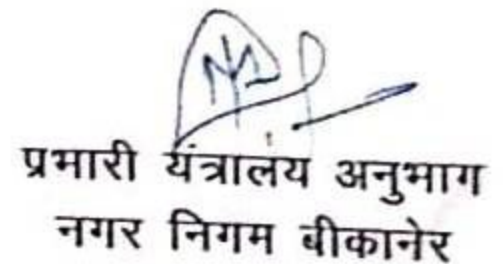 प्रभारी यंत्रालय अनुभाग
नगर निगम बीकानेर